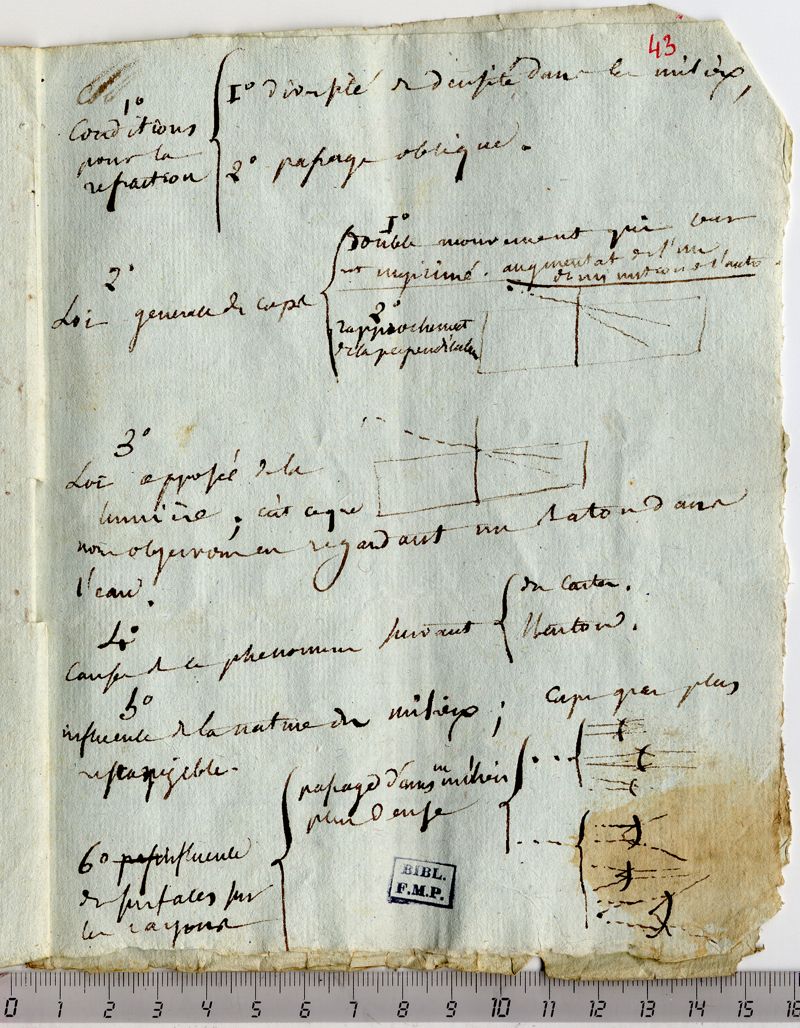 43
1°
Conditions
pour la
refraction
1° diversité de densité dans les milieux,
2° passage oblique.
2°
Loi generale des corps
1°
double mouvement qui leur
est imprimé. augmentat de l'un
dimin de l'autre
2°
rapprochement
de la perpendiculaire
3°
Loi opposée de la
lumière; c'est ce que
nous observons en regardant un baton dans
l'eau.
4°
Causes de ce phenomene suivant
des Cartes.
Newton.
5°
influence de la nature des milieux; corps gras plus
refrangibles.
6° influence
des surfaces sur
les rayons
passage dans un milieu
plus dense
BIBL.
F.M.P.
0 1 2 3 4 5 6 7 8 9 10 11 12 13 14 15 16